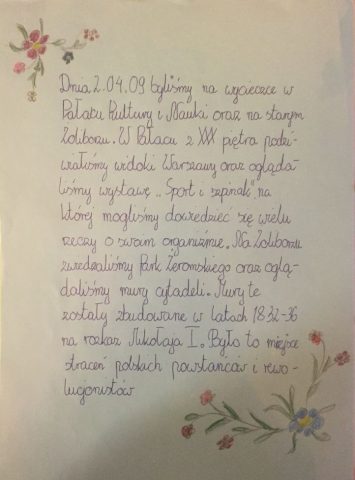 Dnia 2.04.09 byliśmy na wycieczce w
Pałacu Kultury i Nauki oraz na starym
Żoliborzu. W Pałacu z XXX piętra podzi-
wialiśmy widoki Warszawy oraz ogląda-
liśmy wystawę „Sport i szpinak" na
której mogliśmy dowiedzieć się wielu
rzeczy o swoim organiźmie. Na Żoliborzu
zwiedzaliśmy Park Żeromskiego oraz oglą-
daliśmy mury cytadeli. Mury te
zostały zbudowane w latach 1832-36
na rozkaz Mikołaja I. Było to miejsce
straceń polskich powstańców i rewo-
lucjonistów